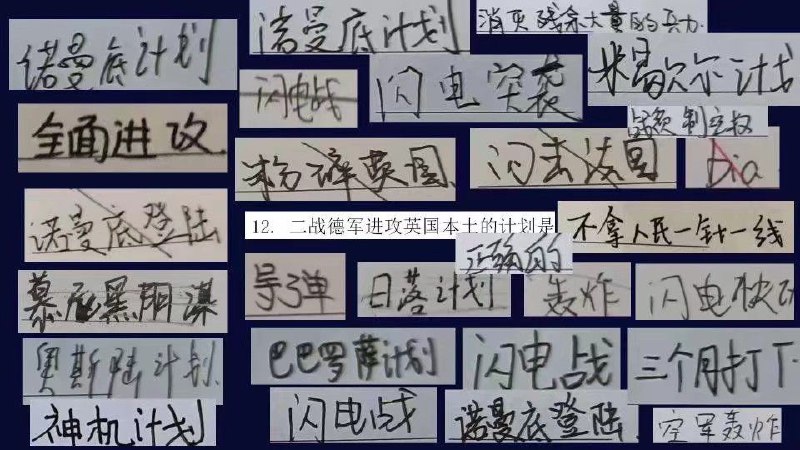 消灭残余大量的兵力.
诺曼底计划
诺曼底计划
闪电战
闪电突袭
米歇尔计划
全面进攻.
战领制空权
粉碎英国.
闪击法国
Dio
诺曼底登陆
12. 二战德军进攻英国本土的计划是
不拿人民一针一线
正确的
慕尼黑阴谋
导弹
日落计划
轰炸
闪电
奥斯陆计划.
巴巴罗萨计划
闪电战
三个月打下
神机计划
闪电战
诺曼底登陆.
空军轰炸